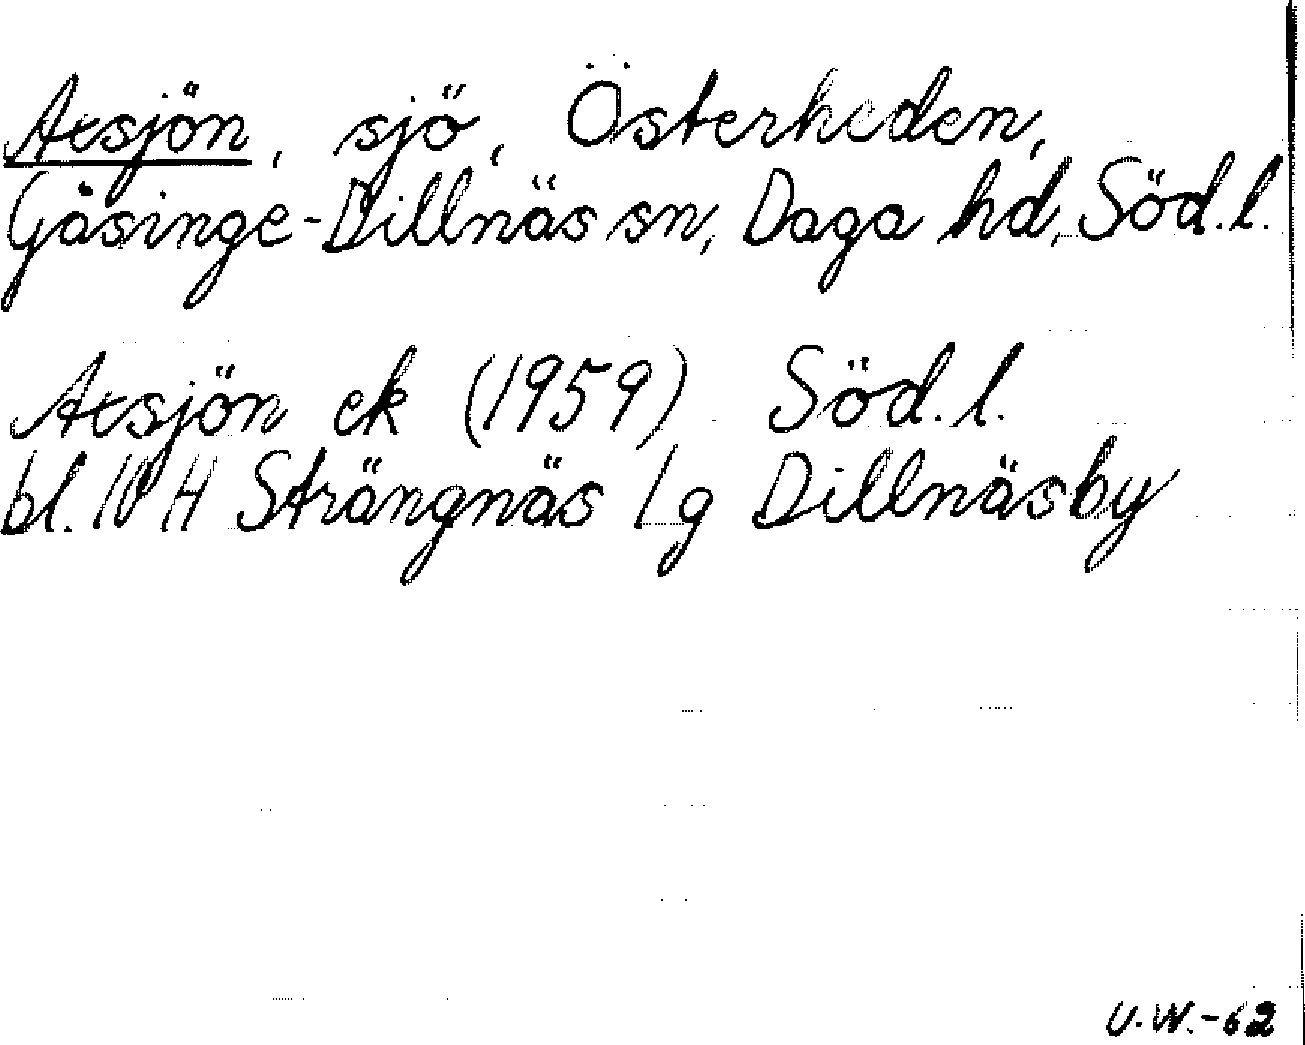 Axsjön, sjö, Österheden,
Gåsinge-Dillnäs sn, Daga hd, Söd.l.
Axsjön ek (1959) Söd.l.
bl. 10 H Strängnäs 1 g Dillnäsby
U.W.-62